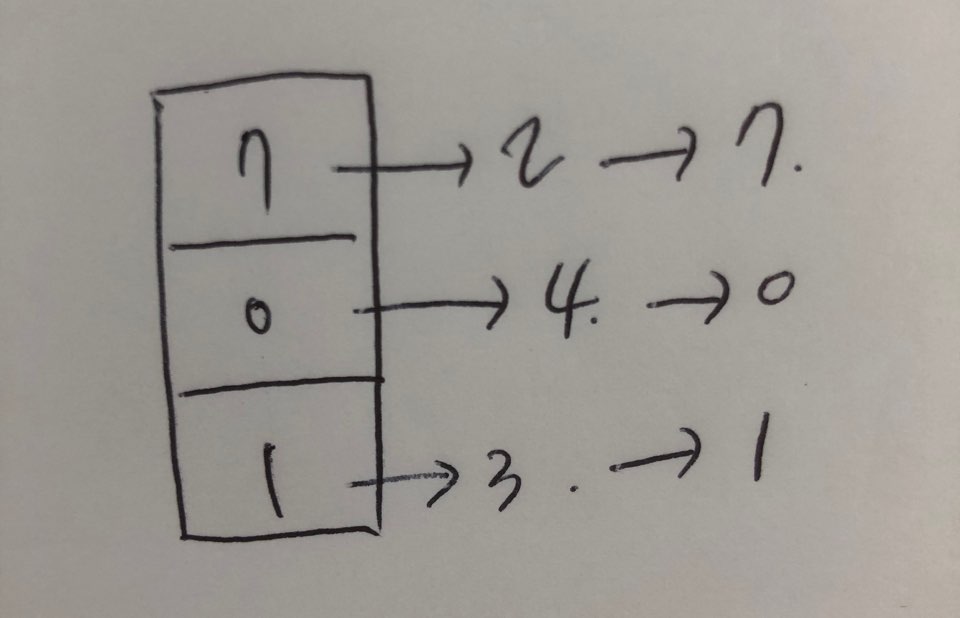 7 → 2 → 7.
0 → 4. → 0
1 → 3. → 1